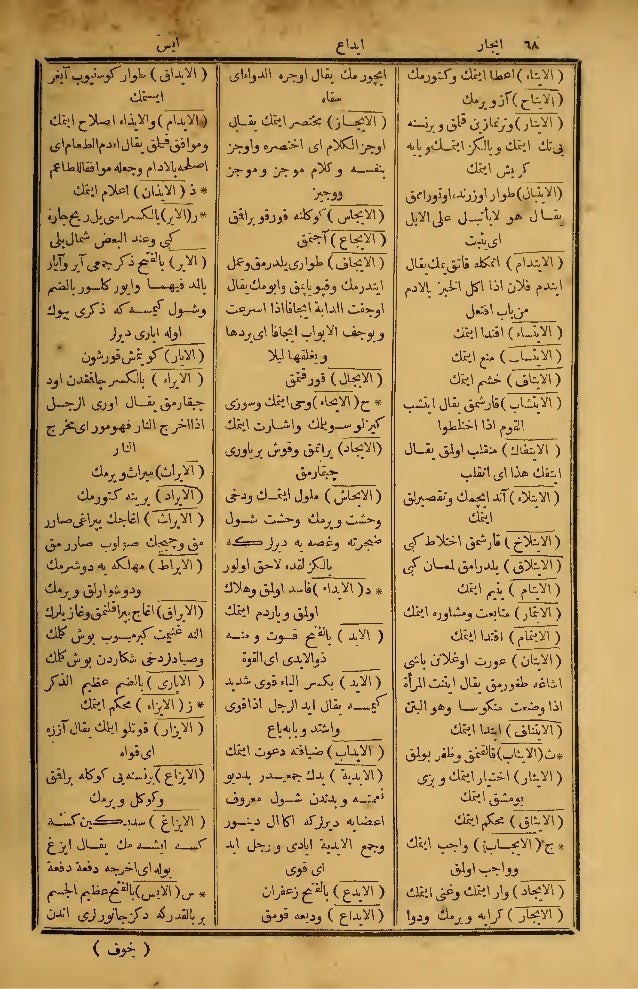 ٦٨ ايجار ايداع ايس
( الايتاء ) اعطا ايتمك وكتورمك
( الايتاح ) آزويرمك
( الايتار ) وترنمازين قلق و برنسنه
بى تك ايتمك و يالكز ايتمك و يايه
كريش ايتمك
(الايتبال) طوار اوزرنده اوتورامق
يقال هو لا يأتبل على الابل
اى يثبت
( الايتدام ) اتمكله قاتق يمك يقال
ايتدم فلان اذا اكل الخبز بالادم
من باب افتعل
( الايتساء ) اقتدا ايتمك
( الايتساب ) منع ايتمك
( الايتاف ) خشم ايتمك
( الايتشاب ) قارشمق يقال ايتشب
القوم اذا اختلطوا
( الايتفاك ) منقلب اولمق يقال
ايتفك هذا اى انقلب
( الايتلاء ) آند ايچمك وتقصيرلق
ايتمك
( الايتلاخ ) قارشمق اختلاط كبى
( الايتلاق ) يلدرامق لمعان كبى
( الايتام ) يتيم ايتمك
( الايتمار ) متابعت ومشاوره ايتمك
( الايتمام ) اقتدا ايتمك
( الايتان ) عورت اوغلانن باشى
اشاغه طغورمق يقال ايتنت المرأة
اذا وضعت منكوسا وهو اليتن
( الايتناف ) ابتدا ايتمك
*ث (الايثاب) قالقتمق وظفر بولمق
( الايثار ) اختيار ايتمك و يرى
يومشق ايتمك
( الايثاق ) محكم ايتمك
* ج ( الايجاب ) واجب ايتمك
وواجب اولمق
( الايجاد ) وار ايتمك وغنى ايتمك
( الايجار ) كرايه ويرمك ودوا
ايچورمك يقال اوجره الدواء اى
سقاه
( الايجاز ) مختصر ايتمك يقال
اوجز الكلام اى اختصره واوجز
بنفسه وكلام موجز و موجز
ووجيز
( الايجاس ) كوكلنه قورقو براقق
( الايجاع ) آجتمق
( الايجاف ) طوارى يلدرمق وعمل
ايتدرمك وقپو ياپتق وايومك يقال
اوجفت الدابة ايجافا اذا اسرعت
و يوجف الابواب ايجافا اى يردها
و يغلقها ليلا
( الايجال ) قورقتمق
* ح ( الايحاء ) وحى ايتمك وسوزى
كيزلو سويلمك واشارت ايتمك
(الايجاد) يراتمق وقوش يرياورى
چيقارمق
( الايحاش ) ملول ايتمك ودخى
وحشت ويرمك وحشت شول
ضجرته وغصه يه ديرلركه
يالكزلقده لاحق اولور
* د ( الايداء ) فاسد اولمق وهلاك
اولمق و ياردم ايتمك
( الايد ) بالفتح قوت ومنه
ذوالايدى اى القوة
( الايد ) بكسر الياء قوى شديد
كيمسه يقال ايد الرجل اذا قوى
واشتد و بابه باع
( الايداب ) ضيافته دعوت ايتمك
( الايدية ) يدك جمعيدر يد ديو
نعمته و بدندن شول معروف
اعضايه ديرلركه اكا ال دينور
وجمع الايدية ايادى و رجل ايد
اى قوى
( الايدع ) بالفتح زعفران
( الايداع ) وديعه قومق
( الايداق ) طوار كوسنيوب آيغر
ايستمك
( الايدام ) والايذاء اصلاح ايتمك
وموافق قيلق يقال اءدم الطعام اى
اصلحه بالادام وجعله موافقا للطاعم
* ذ ( الايذان ) اعلام ايتمك
*ر(الاير) بالكسر اسى يل ريح حاره
كبى وعند البعض شمال يلى
( الاير ) بالفتح ذكر جمعى آير وآيار
بالمد فيهما وايور كلسور بالضم
وشول كيمسه كه ذكرى بيوك
اوله ايارى ديرلر
( الايار ) كويمش قورشون
( الايراء ) بالكسر چاقمقدن اود
چيقارمق يقال اورى الرجل
اذا اخرج النار فهو مورى اى مخرج
النار
( الايراث ) ميراث ويرمك
( الايراد ) يرينه كتورمك
( الايراث ) اغاجك يپراغى صارر
مق وچيچك صولوب صارر مق
( الايراط ) مهلكه يه دوشرمك
ودوشوارلق و يرمك
(الايراق) اغاج يپراقلنمق وغازيلرك
النه غنيمت كيرميوب بوش كلك
وصيادلر دخى شكاردن بوش كلك
( الايارى ) بالضم عظيم الذكر
* ز ( الايزاء ) محكم ايتمك
( الايزار ) قوتلو ايتمك يقال آزره
اى قواه
( الايزاع ) برنسنه يى كوكله براقق
وكوكل ويرمك
( الايزاغ ) سديكين كسه
كسه ايشه مك يقال ايزغ
بوله اى اخرجه دفعة دفعة
* س (الايس) بالفتح عظيم الجسم
بر بالقدركه دكز جانورلرى اندن
( خوف )